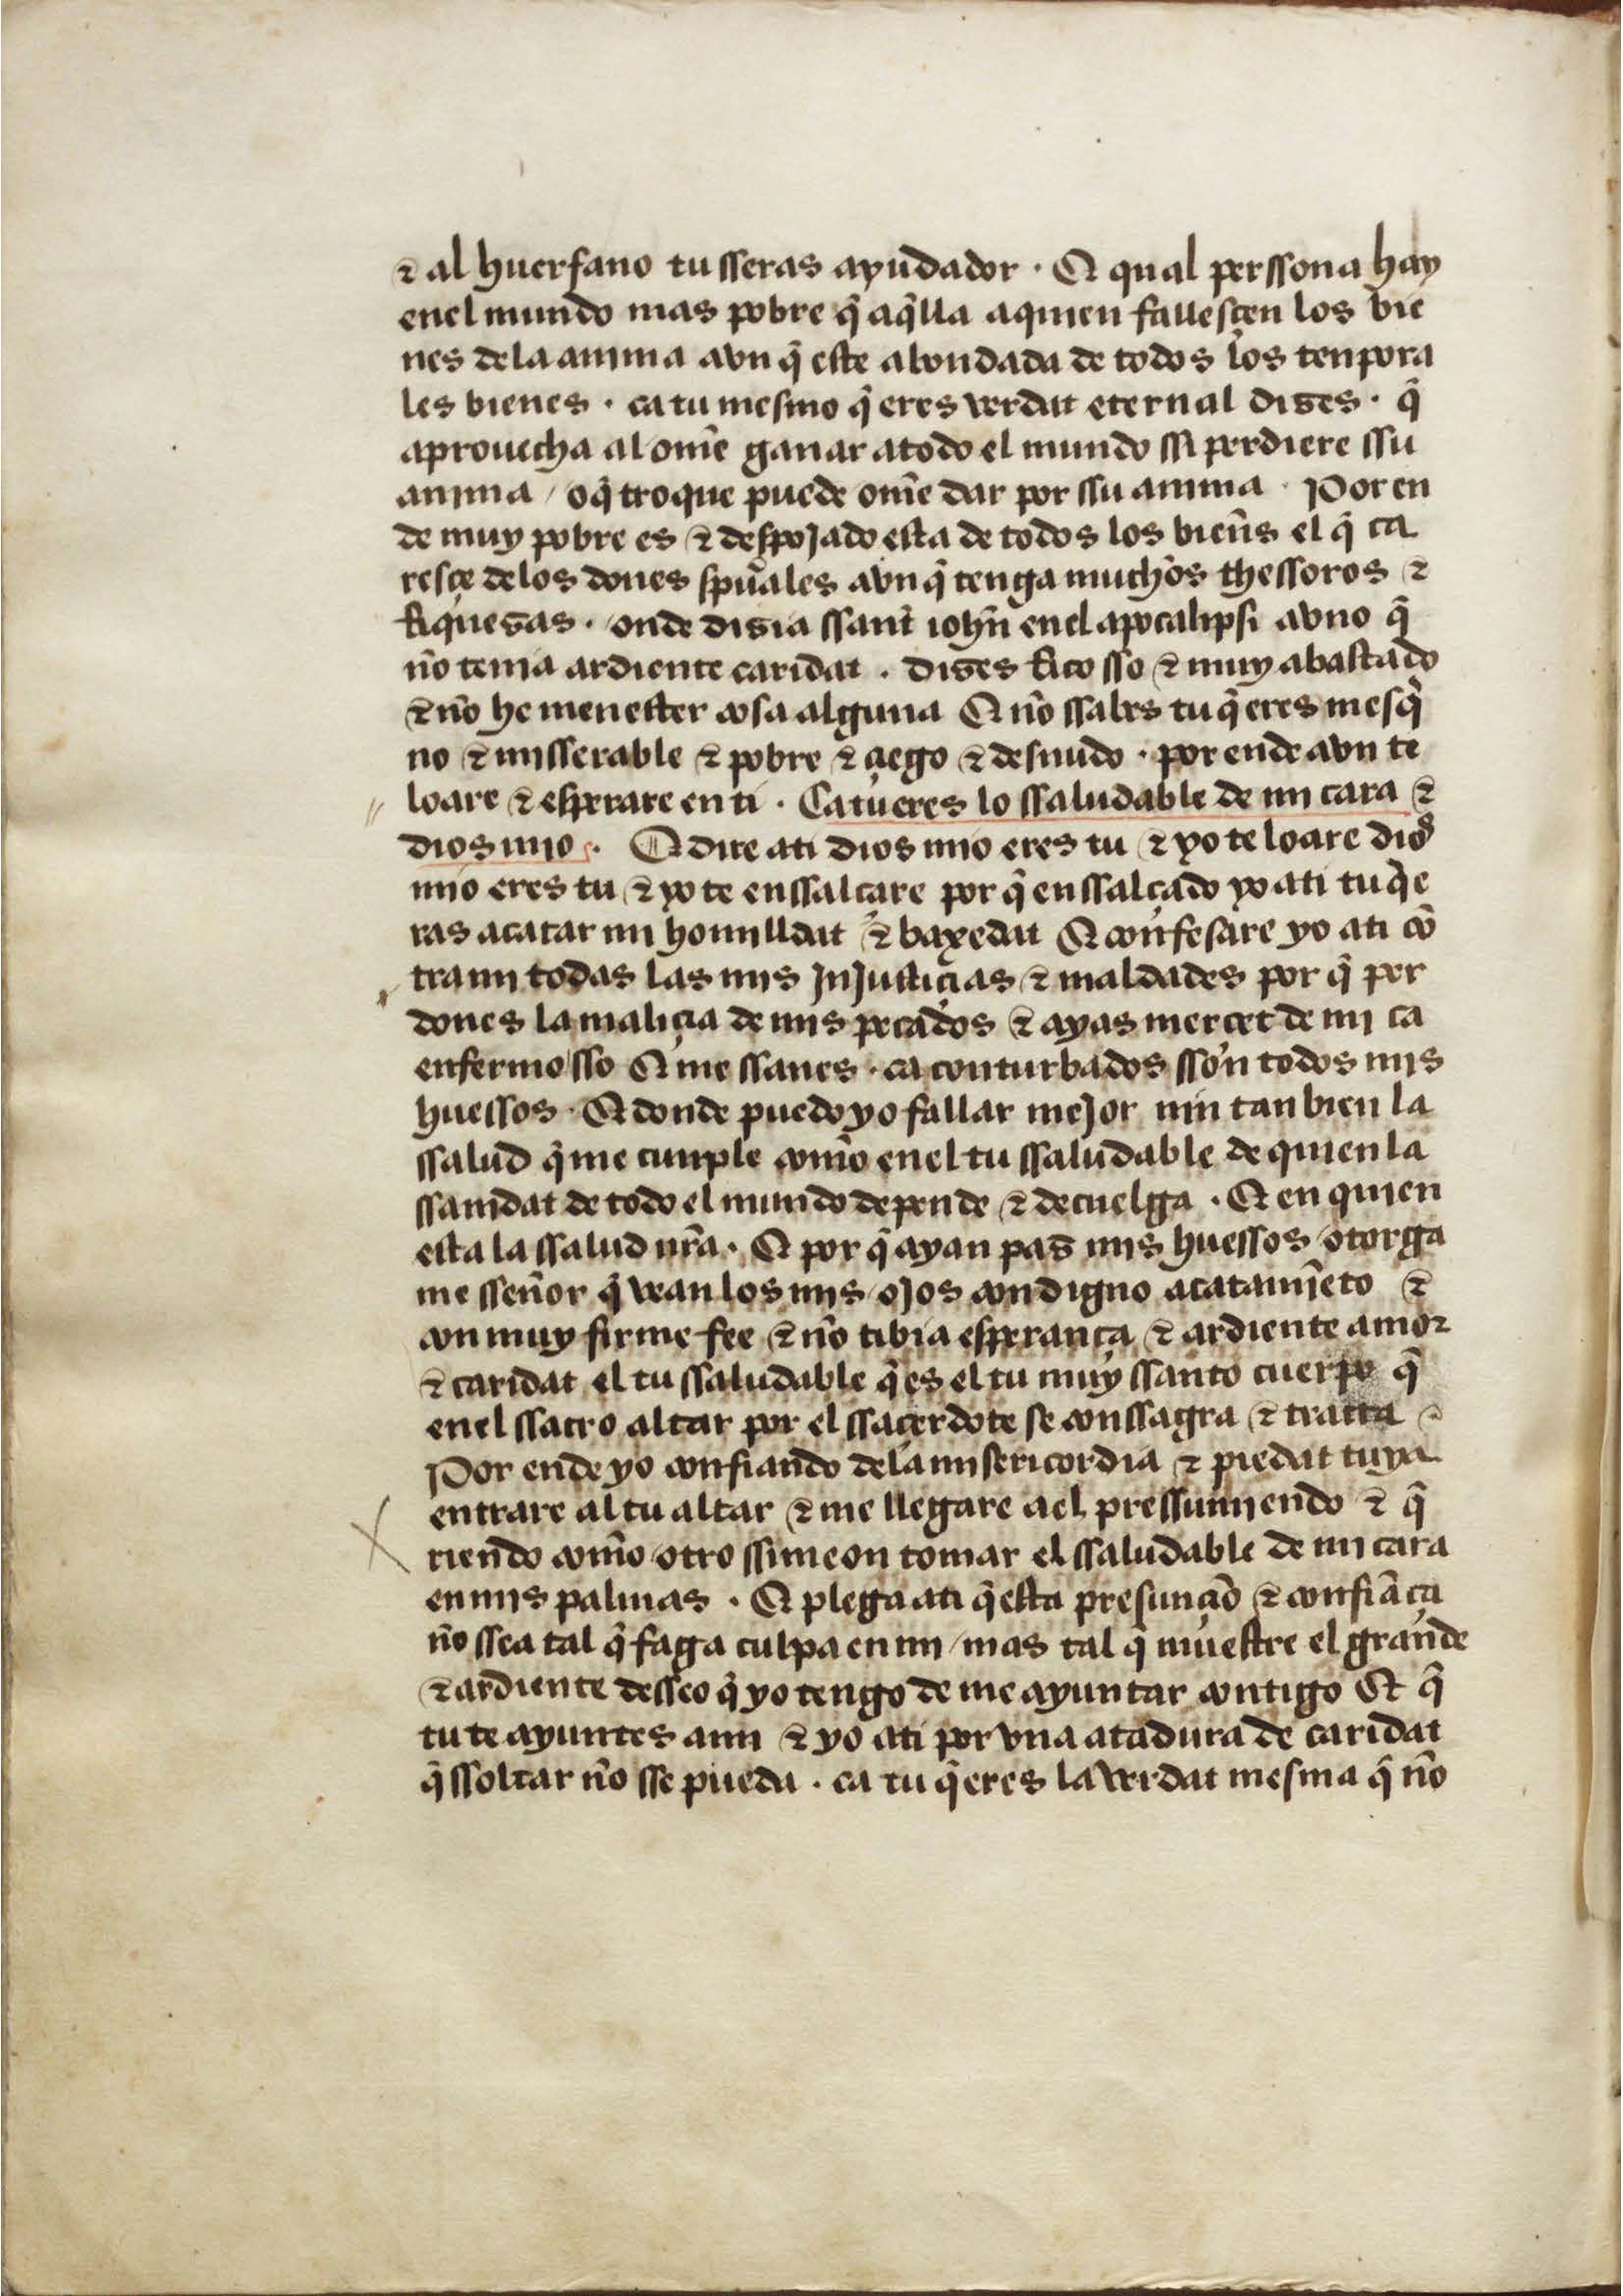 ⁊ al huerfano tu sseras ayudador · Et qual perssona hay
enel mundo mas pobre q̃ aq̃lla aquien fallesçen los bie
nes dela anima avn q̃ este abondada de todos los tenpora
les bienes · ca tu mesmo q̃ eres verdat eternal dizes · q̃
aprouecha al om̃e ganar atodo el mundo ssi perdiere ssu
anima / o q̃ troque puede om̃e dar por ssu anima · Por en
de muy pobre es ⁊ despojado esta de todos los bieñs el q̃ ca
resçe delos dones sp̃uales avn q̃ tenga muchos thessoros ⁊
Riquezas · onde dizia ssant ioh̃n enel apocalipsi avno q̃
ño tenia ardiente caridat · dizes Rico sso ⁊ muy abastado
⁊ ño he menester cosa alguna Et ño ssabes tu q̃ eres mesq̃
no ⁊ misserable ⁊ pobre ⁊ çiego ⁊ desnudo · por ende avn te
loare ⁊ esperare en ti · Ca tu eres lo ssaludable de mi cara ⁊
dios mio · Et dire ati dios mio eres tu ⁊ yo te loare dios
mio eres tu ⁊ yo te enssalçare por q̃ enssalçado yo ati tu q̃e
ras acatar mi homilldat ⁊ baxedat Et confesare yo ati cõ
tra mi todas las mis jnjustiçias ⁊ maldades por q̃ per
dones la maliçia de mis pecados ⁊ ayas merçet de mi ca
enfermo sso Et me ssanes · ca conturbados sson todos mis
huessos · Et donde puedo yo fallar mejor nin tan bien la
ssalud q̃ me cunple com̃o enel tu ssaludable de quien la
ssanidat de todo el mundo depende ⁊ decuelga · Et en quien
esta la ssalud nr̃a · Et por q̃ ayan paz mis huessos / otorga
me sseñor q̃ vean los mis ojos con digno acatamĩeto ⁊
con muy firme fee ⁊ ño tibia esperança ⁊ ardiente amor
⁊ caridat el tu ssaludable q̃ es el tu muy ssanto cuerpo q̃
enel ssacro altar por el ssaçerdote se conssagra ⁊ tracta
Por ende yo confiando dela misericordia ⁊ piedat tuya
entrare al tu altar ⁊ me llegare ael pressumiendo ⁊ q̃
riendo com̃o otro ssimeon tomar el ssaludable de mi cara
en mis palmas · Et plega ati q̃ esta presunçiõ ⁊ confiãça
ño ssea tal q̃ faga culpa en mi / mas tal q̃ muestre el grande
⁊ ardiente desseo q̃ yo tengo de me ayuntar contigo Et q̃
tu te ayuntes ami ⁊ yo ati por vna atadura de caridat
q̃ ssoltar ño sse pueda · ca tu q̃ eres la verdat mesma q̃ ño